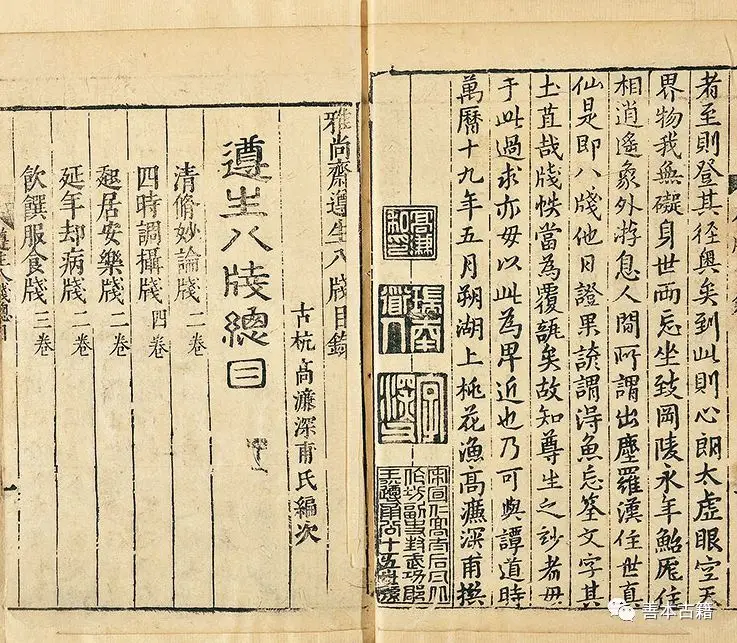 者至則登其徑奧矣到此則心朗太虛眼空天
界物我無礙身世兩忘坐致岡陵永年鮐厖住
相逍遙象外游息人間所謂出塵羅漢住世真
仙是即八牋他日證果諺謂得魚忘筌文字其
土苴哉牋帙當為覆瓿矣故知尊生之妙者毋
于此過求亦毋以此為卑近也乃可與譚道時
萬曆十九年五月朔湖上桃花漁高濂深甫撰
瑞南道人
雅尚齋遵生八牋目錄
古杭高濂深甫氏編次
遵生八牋總目
清脩妙論牋 二卷
四時調攝牋 四卷
起居安樂牋 二卷
延年却病牋 二卷
飲饌服食牋 三卷
遵生八牋總目
善本古籍